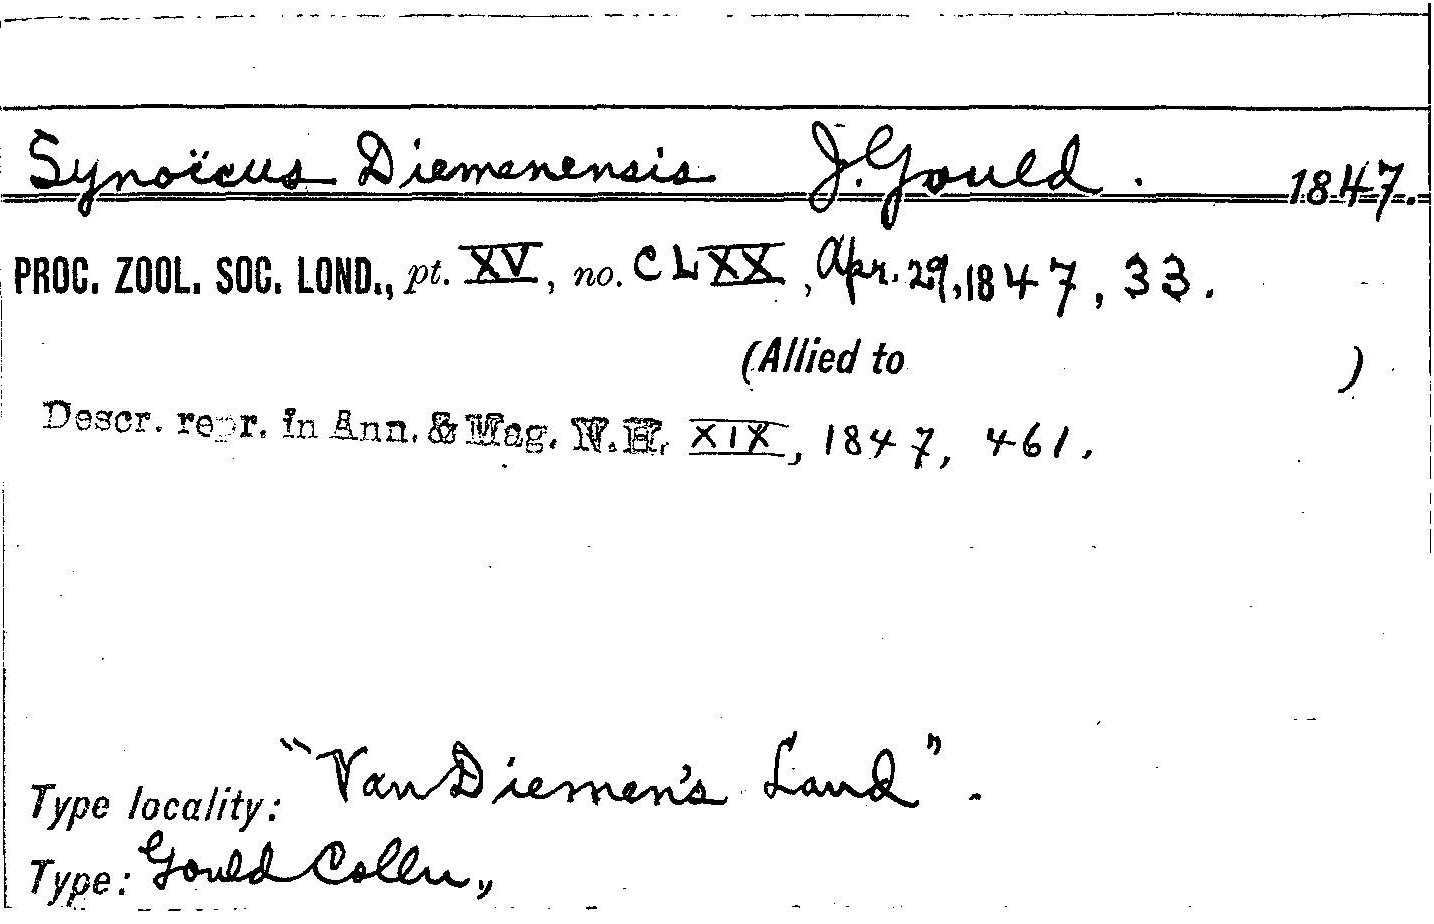 Synoïcus Diemenensis J. Gould. 1847.
PROC. ZOOL. SOC. LOND., pt. XV, no. CLXX, Apr. 29, 1847, 33.
(Allied to )
Descr. repr. in Ann. & Mag. N.H. XIX, 1847, 461.
Type locality: "Van Diemen's Land".
Type: Gould Colln.,